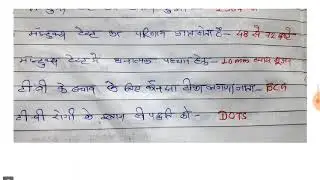 मॉन्टुक्स टेस्ट का परिणाम ज्ञात होता है- 48 से 72 घण्टे
मॉन्टुक्स टेस्ट में धनात्मक पहचान हेतु- 10mm व्यास सूजन
टी.बी के बचाव के लिए कौन सा टीका लगाया जाता- BCG
टी बी रोगी के इलाज की पद्धति को- DOTS